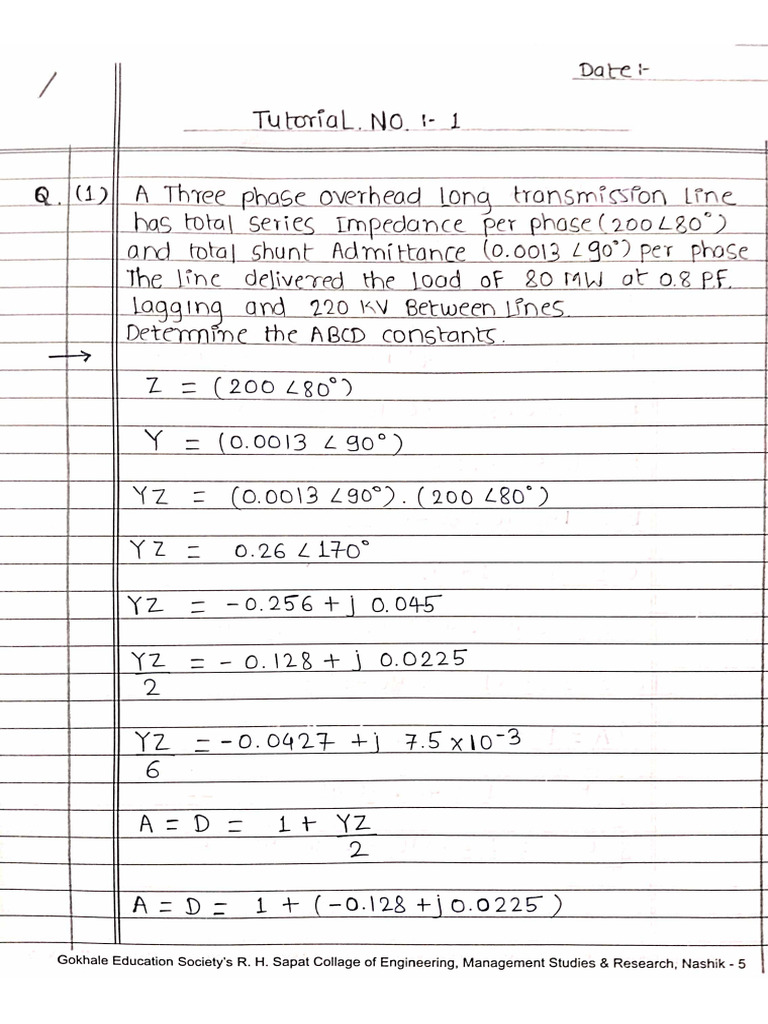 Date:-
Tutorial. NO. :- 1
Q. (1) A Three phase overhead long transmission line
has total series Impedance per phase (200∠80°)
and total shunt Admittance (0.0013 ∠90°) per phase
The line delivered the load of 80 MW at 0.8 P.F.
Lagging and 220 KV Between Lines.
Determine the ABCD constants.
→
Z = (200 ∠80°)
Y = (0.0013 ∠ 90°)
YZ = (0.0013 ∠90°). (200 ∠80°)
YZ = 0.26 ∠ 170°
YZ = -0.256 + j 0.045
YZ/2 = - 0.128 + j 0.0225
YZ/6 = -0.0427 + j 7.5 × 10⁻³
A = D = 1 + YZ/2
A = D = 1 + (-0.128 + j 0.0225)
Gokhale Education Society's R. H. Sapat Collage of Engineering, Management Studies & Research, Nashik - 5